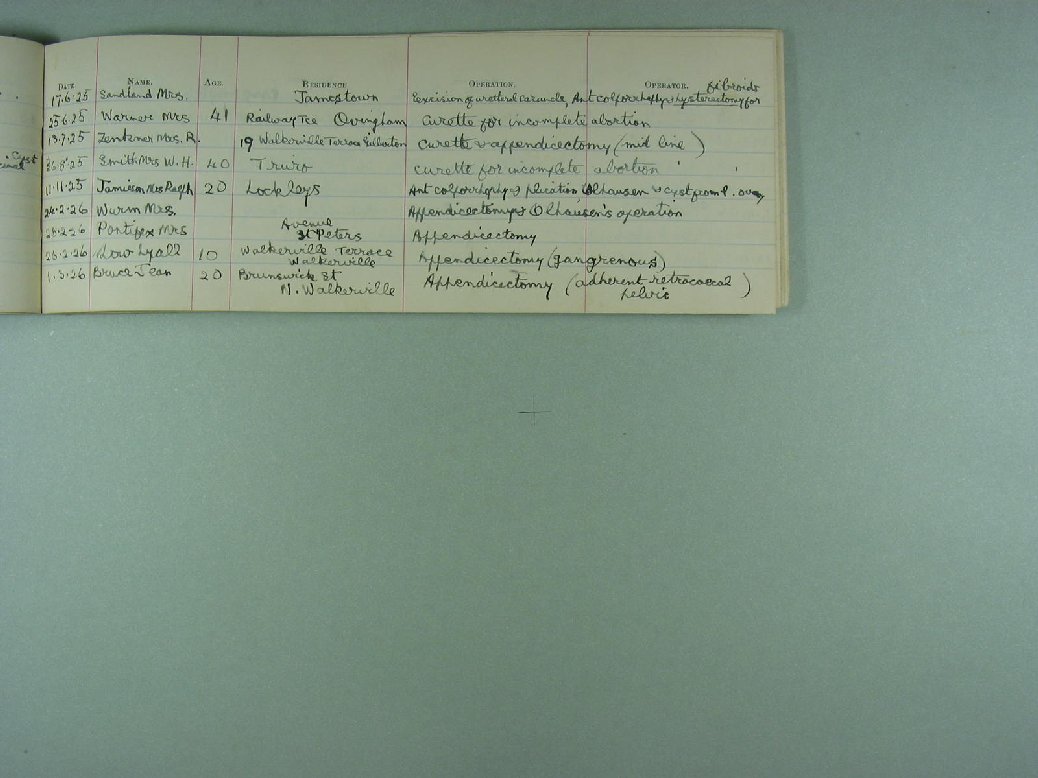 DATE NAME. AGE. RESIDENCE OPERATION. OPERATOR. fibroids
17.6.25 Sandland Mrs. Jamestown Excision of urethral caruncle, Ant colporrhaphy, hysterectomy for
25.6.25 Warner Mrs 41 Railway Tce Ovingham curette for incomplete abortion
13.7.25 Zentener Mrs. R. 19 Walkerville Terrace curette & appendicectomy (mid line)
cyst
.8.25 Smith Mrs W. H. 40 Truro curette for incomplete abortion
11.11.25 Jamieson Mrs Ralph 20 Lockleys Ant colporrhaphy & plication Olhausen & cyst from l. ovary
24.2.26 Wurm Mrs. Appendicectomy & Olhausen's operation
Avenue
2.26 Pontifex Mrs St Peters Appendicectomy
26.2.26 Dow Lyall 10 Walkerville Terrace Appendicectomy (gangrenous)
Walkerville
1.3.26 Bruce Jean 20 Brunswick St Appendicectomy (adherent retrocaecal)
N. Walkerville pelvic